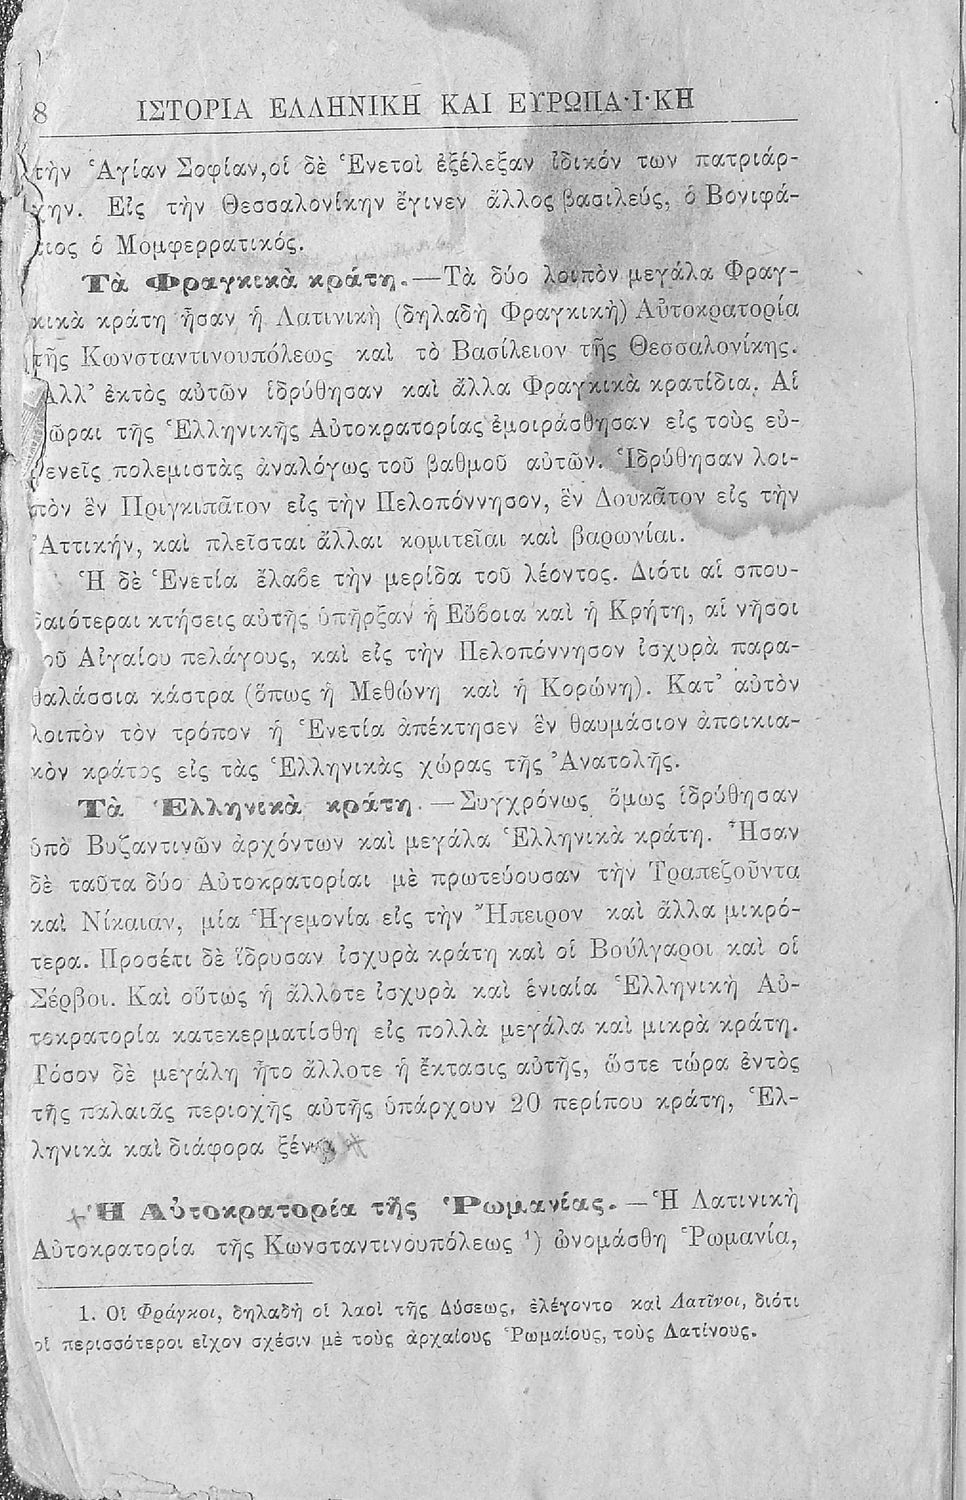 8 ΙΣΤΟΡΙΑ ΕΛΛΗΝΙΚΗ ΚΑΙ ΕΥΡΩΠΑ·Ι·ΚΗ
τὴν Ἁγίαν Σοφίαν, οἱ δὲ Ἑνετοὶ ἐξέλεξαν ἰδικόν των πατριάρ-
χην. Εἰς τὴν Θεσσαλονίκην ἔγινεν ἄλλος βασιλεύς, ὁ Βονιφά-
τιος ὁ Μομφερρατικός.
Τὰ Φραγκικὰ κράτη.—Τὰ δύο λοιπὸν μεγάλα Φραγ-
κικὰ κράτη ἦσαν ἡ Λατινικὴ (δηλαδὴ Φραγκικὴ) Αὐτοκρατορία
τῆς Κωνσταντινουπόλεως καὶ τὸ Βασίλειον τῆς Θεσσαλονίκης.
Ἀλλ' ἐκτὸς αὐτῶν ἱδρύθησαν καὶ ἄλλα Φραγκικὰ κρατίδια. Αἱ
χῶραι τῆς Ἑλληνικῆς Αὐτοκρατορίας ἐμοιράσθησαν εἰς τοὺς εὐ-
γενεῖς πολεμιστὰς ἀναλόγως τοῦ βαθμοῦ αὐτῶν. Ἱδρύθησαν λοι-
πὸν ἓν Πριγκιπᾶτον εἰς τὴν Πελοπόννησον, ἓν Δουκᾶτον εἰς τὴν
Ἀττικήν, καὶ πλεῖσται ἄλλαι κομιτεῖαι καὶ βαρωνίαι.
Ἡ δὲ Ἑνετία ἔλαβε τὴν μερίδα τοῦ λέοντος. Διότι αἱ σπου-
δαιότεραι κτήσεις αὐτῆς ὑπῆρξαν ἡ Εὔβοια καὶ ἡ Κρήτη, αἱ νῆσοι
τοῦ Αἰγαίου πελάγους, καὶ εἰς τὴν Πελοπόννησον ἰσχυρὰ παρα-
θαλάσσια κάστρα (ὅπως ἡ Μεθώνη καὶ ἡ Κορώνη). Κατ' αὐτὸν
λοιπὸν τὸν τρόπον ἡ Ἑνετία ἀπέκτησεν ἓν θαυμάσιον ἀποικια-
κὸν κράτος εἰς τὰς Ἑλληνικὰς χώρας τῆς Ἀνατολῆς.
Τὰ Ἑλληνικὰ κράτη.—Συγχρόνως ὅμως ἱδρύθησαν
ὑπὸ Βυζαντινῶν ἀρχόντων καὶ μεγάλα Ἑλληνικὰ κράτη. Ἦσαν
δὲ ταῦτα δύο Αὐτοκρατορίαι μὲ πρωτεύουσαν τὴν Τραπεζοῦντα
καὶ Νίκαιαν, μία Ἡγεμονία εἰς τὴν Ἤπειρον καὶ ἄλλα μικρό-
τερα. Προσέτι δὲ ἵδρυσαν ἰσχυρὰ κράτη καὶ οἱ Βούλγαροι καὶ οἱ
Σέρβοι. Καὶ οὕτως ἡ ἄλλοτε ἰσχυρὰ καὶ ἑνιαία Ἑλληνικὴ Αὐ-
τοκρατορία κατεκερματίσθη εἰς πολλὰ μεγάλα καὶ μικρὰ κράτη.
Τόσον δὲ μεγάλη ἦτο ἄλλοτε ἡ ἔκτασις αὐτῆς, ὥστε τώρα ἐντὸς
τῆς παλαιᾶς περιοχῆς αὐτῆς ὑπάρχουν 20 περίπου κράτη, Ἑλ-
ληνικὰ καὶ διάφορα ξένα
Ἡ Αὐτοκρατορία τῆς Ῥωμανίας.—Ἡ Λατινικὴ
Αὐτοκρατορία τῆς Κωνσταντινουπόλεως ¹) ὠνομάσθη Ῥωμανία,
1. Οἱ Φράγκοι, δηλαδὴ οἱ λαοὶ τῆς Δύσεως, ἐλέγοντο καὶ Λατῖνοι, διότι
οἱ περισσότεροι εἶχον σχέσιν μὲ τοὺς ἀρχαίους Ῥωμαίους, τοὺς Λατίνους.